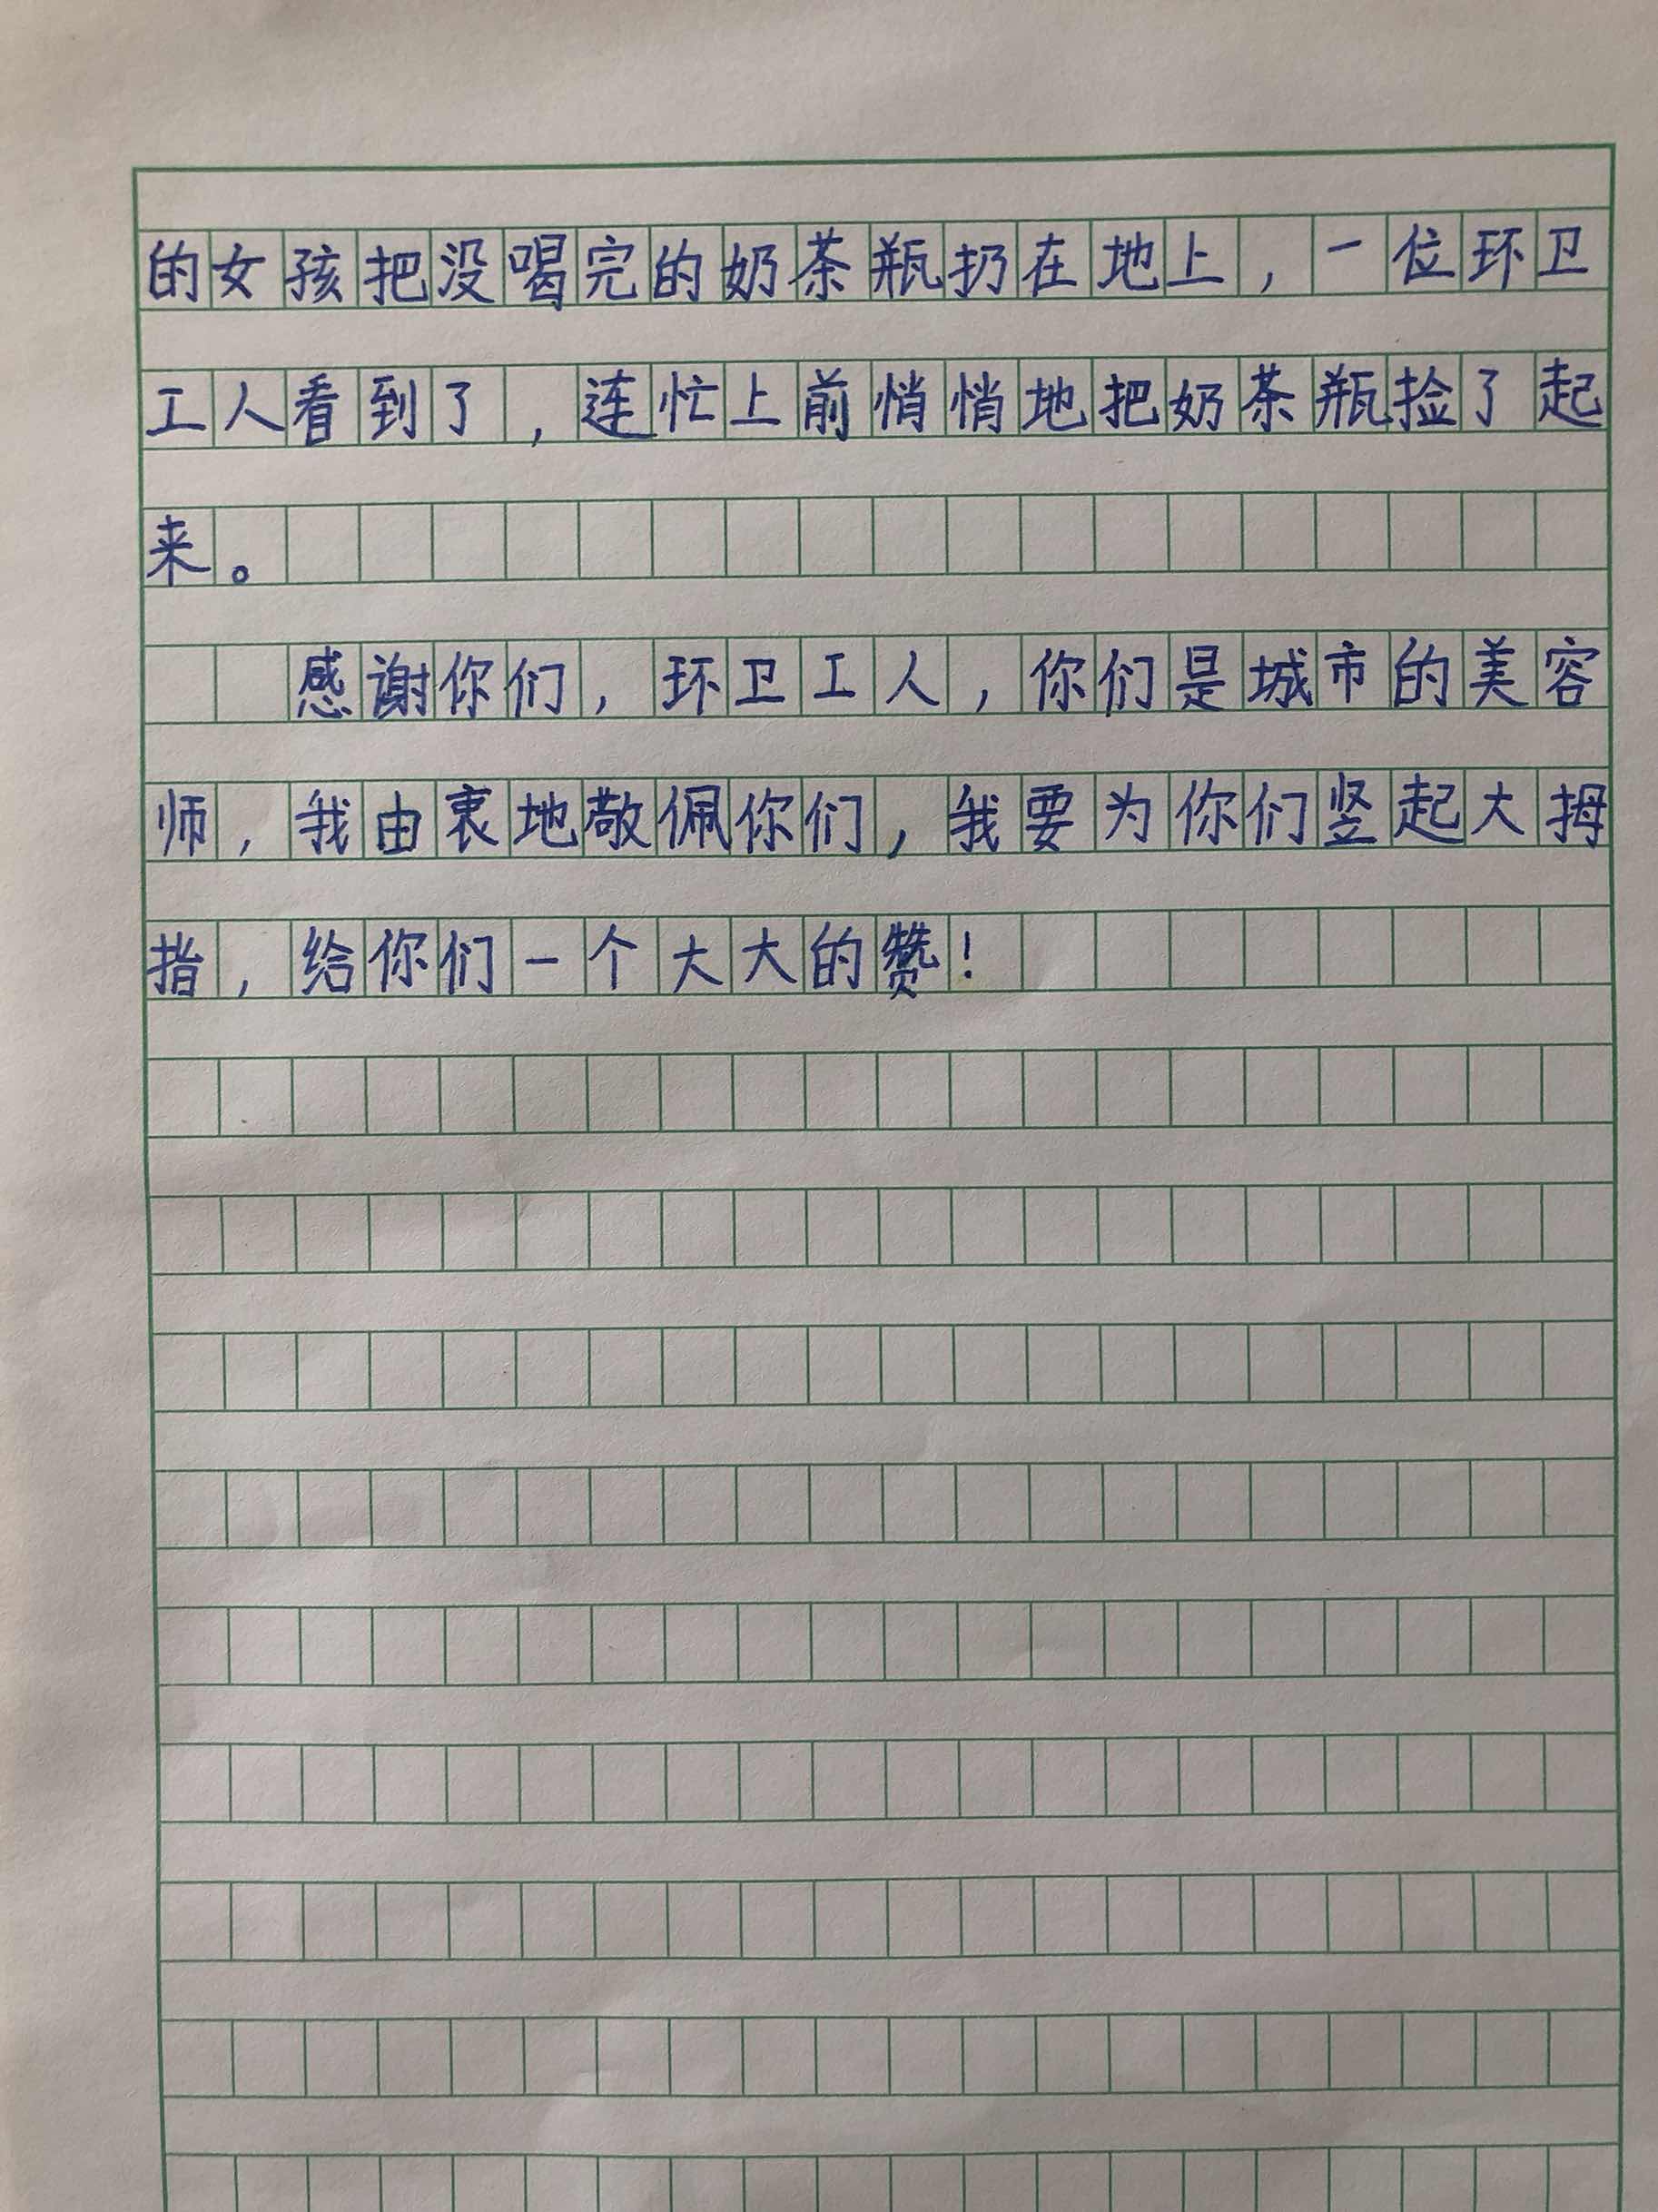 的女孩把没喝完的奶茶瓶扔在地上，一位环卫
工人看到了，连忙上前悄悄地把奶茶瓶捡了起
来。
感谢你们，环卫工人，你们是城市的美容
师，我由衷地敬佩你们，我要为你们竖起大拇
指，给你们一个大大的赞！